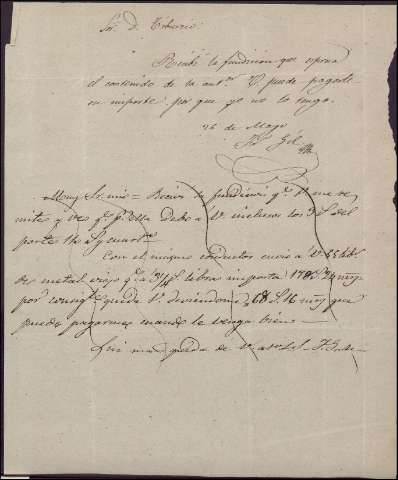 Sr. D. Tiburcio
Recibí la fundicion que espresa
el contenido de la antr. V. puede pagarle
su importe por que yo no lo tengo.
26 de Mayo
Gil
Muy Sr. mio = Recivi la fundicion qe. V. me re-
mite y veo qe. pr. ella debo a V. inclusos los 3 del
porte 110 y cuart
Con el mismo conductor envio a V. 55 lib
de metal viejo qe. a 3 1/4 libra importa 178 24 mrs
por consigte. queda V. deviendome 68 16 mrs que
puede pagarme cuando le venga bien
queda de V. S.